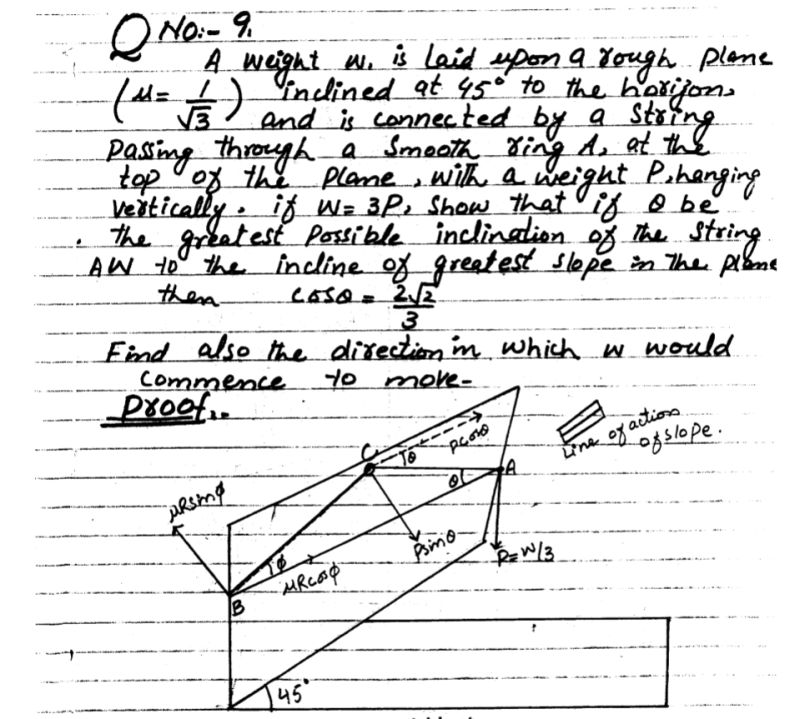 Q No:- 9.
A weight w. is laid upon a rough plane
(μ = 1/√3) inclined at 45° to the horizon.
and is connected by a string
passing through a smooth ring A, at the
top of the plane, with a weight P, hanging
vertically. if W= 3P, show that if θ be
the greatest possible inclination of the string
AW to the incline of greatest slope in the plane
then cosθ = 2√2/3
Find also the direction in which w would
commence to move-
Proof..
C
θ
Pcosθ
Line of action
of slope.
A
θ
μRsinφ
Psinθ
P=W/3
φ
μRcosφ
B
45°